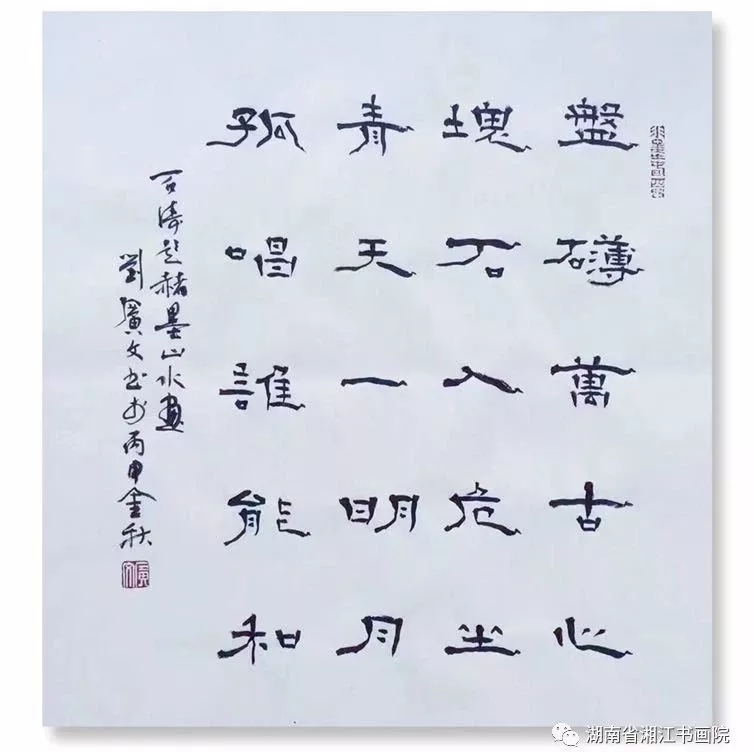 盤礴萬古心
塊石入危坐
青天一明月
孤唱誰能和
石濤題赭墨山水畫
劉廣文書於丙申金秋
湖南省湘江书画院